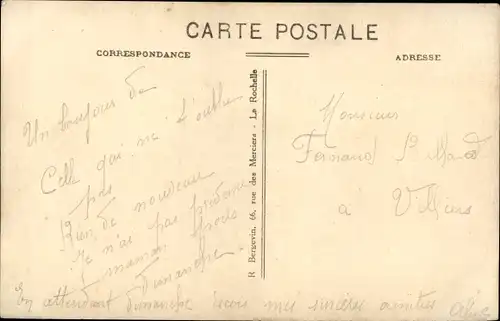 CARTE POSTALE
CORRESPONDANCE
ADRESSE
Un bonjour de
Celle qui ne t'oublie
pas
Rien de nouveau
Je n'ai pas
maman
dimanche
En attendant dimanche reçois mes sincères amitiés
R Bergevin, 66, rue des Merciers - La Rochelle
Monsieur
Fernand
à Villiers